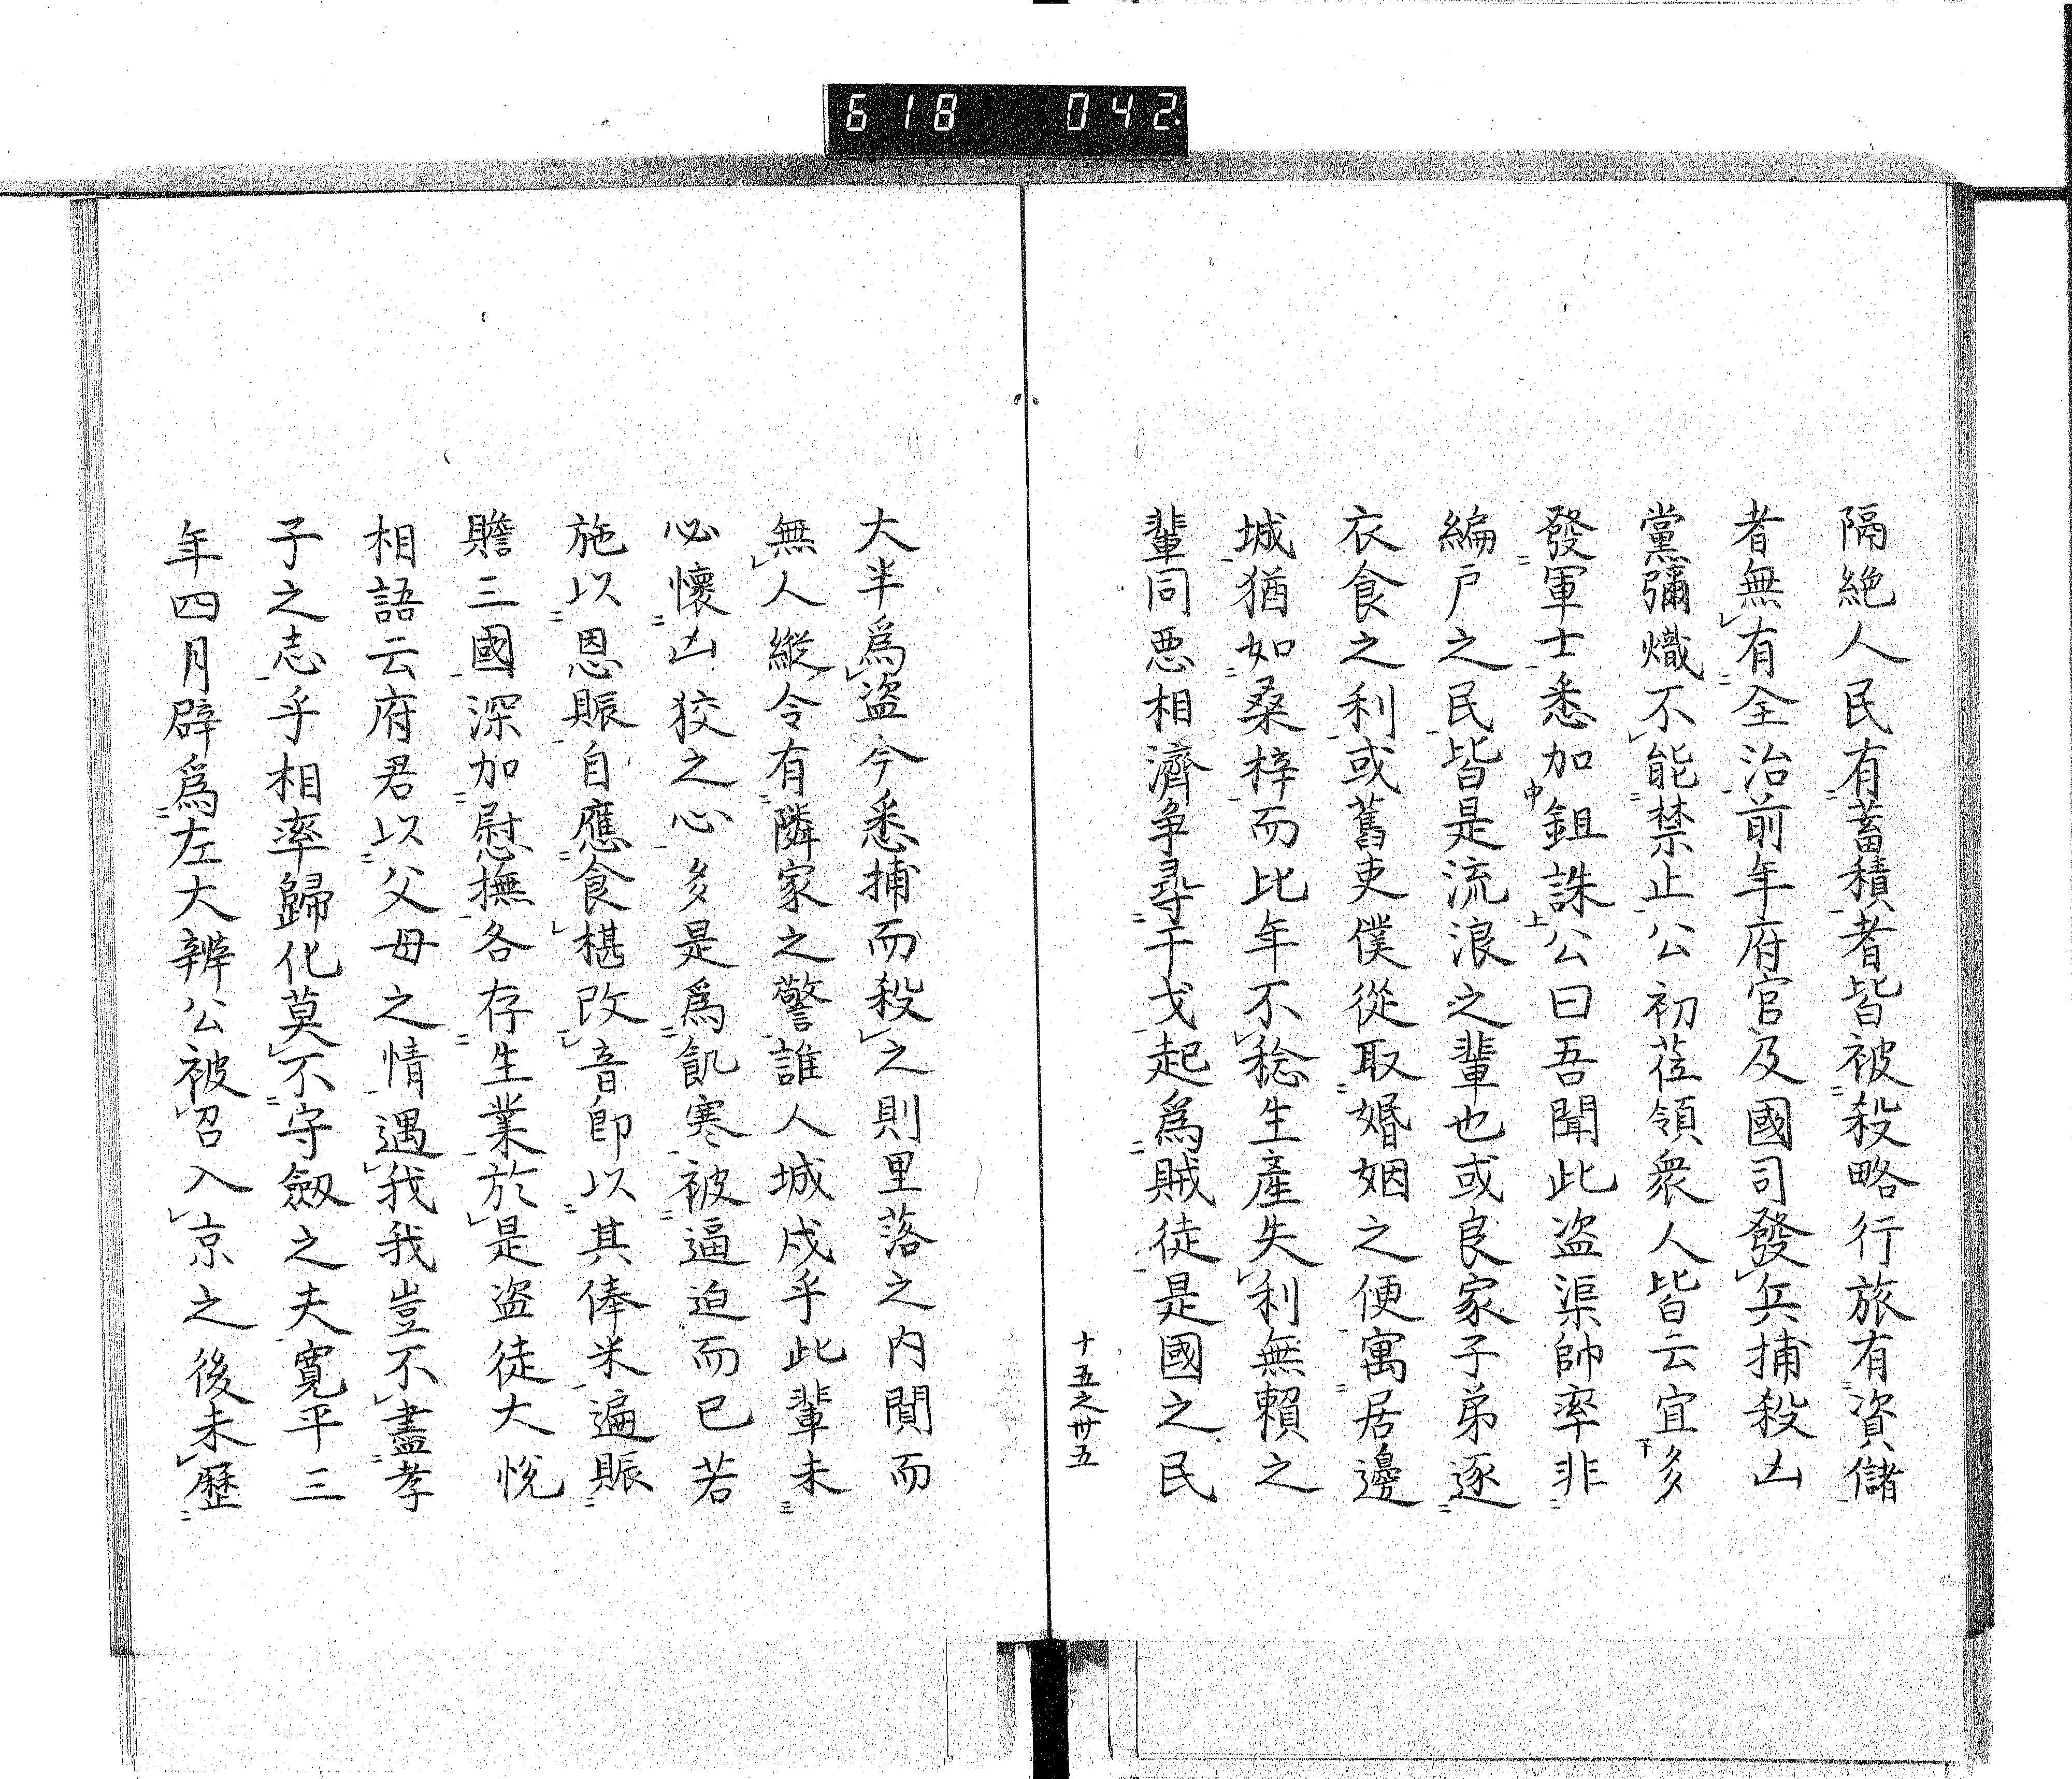 618 042.
隔絶人民有蓄積者皆被殺略行旅有資儲
者無有全治前年府官及國司發兵捕殺凶
黨彌熾不能禁止公初莅領衆人皆云宜多
發軍士悉加鉏誅公曰吾聞此盗渠帥率非
編戸之民皆是流浪之輩也或良家子弟逐
衣食之利或舊吏僕從取婚姻之便寓居邊
城猶如桑梓而比年不稔生産失利無頼之
輩同悪相濟争尋干戈起爲賊徒是國之民
十五之卅五
大半爲盗今悉捕而殺之則里落之内閴而
無人縦令有隣家之警誰人城戍乎此輩未
必懷凶狡之心多是爲飢寒被逼迫而已若
施以恩賑自應食椹改音即以其俸米遍賑
贍三國深加慰撫各存生業於是盗徒大悦
相語云府君以父母之情遇我我豈不盡孝
子之志乎相率歸化莫不守劔之夫寛平三
年四月辟爲左大辨公被召入京之後未歷